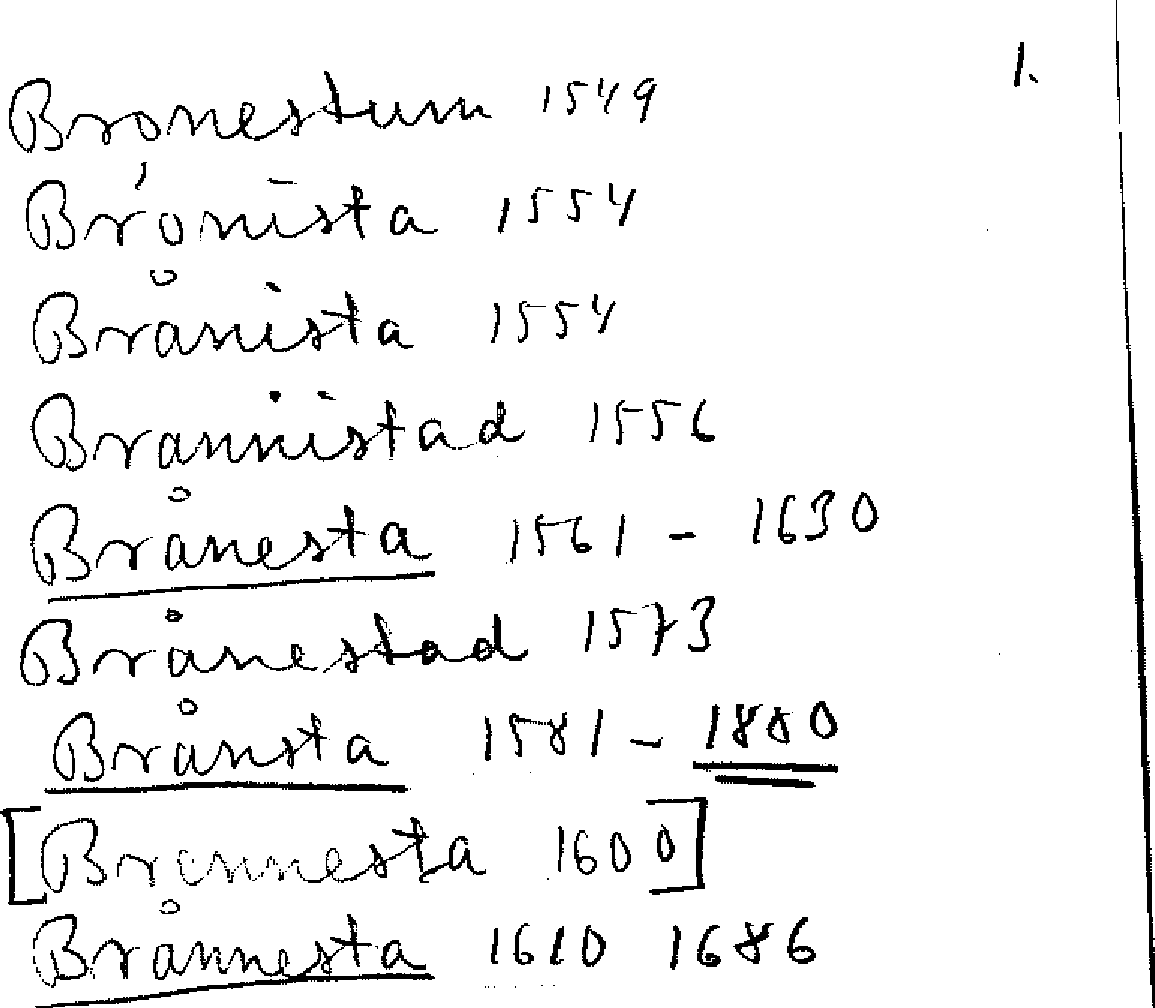 1.
Bronestum 1549
Brónista 1554
Brånista 1554
Brannistad 1556
Brånesta 1561 - 1630
Brånestad 1573
Brånsta 1581 - 1880
[Brannesta 1600]
Brånnesta 1610 1686